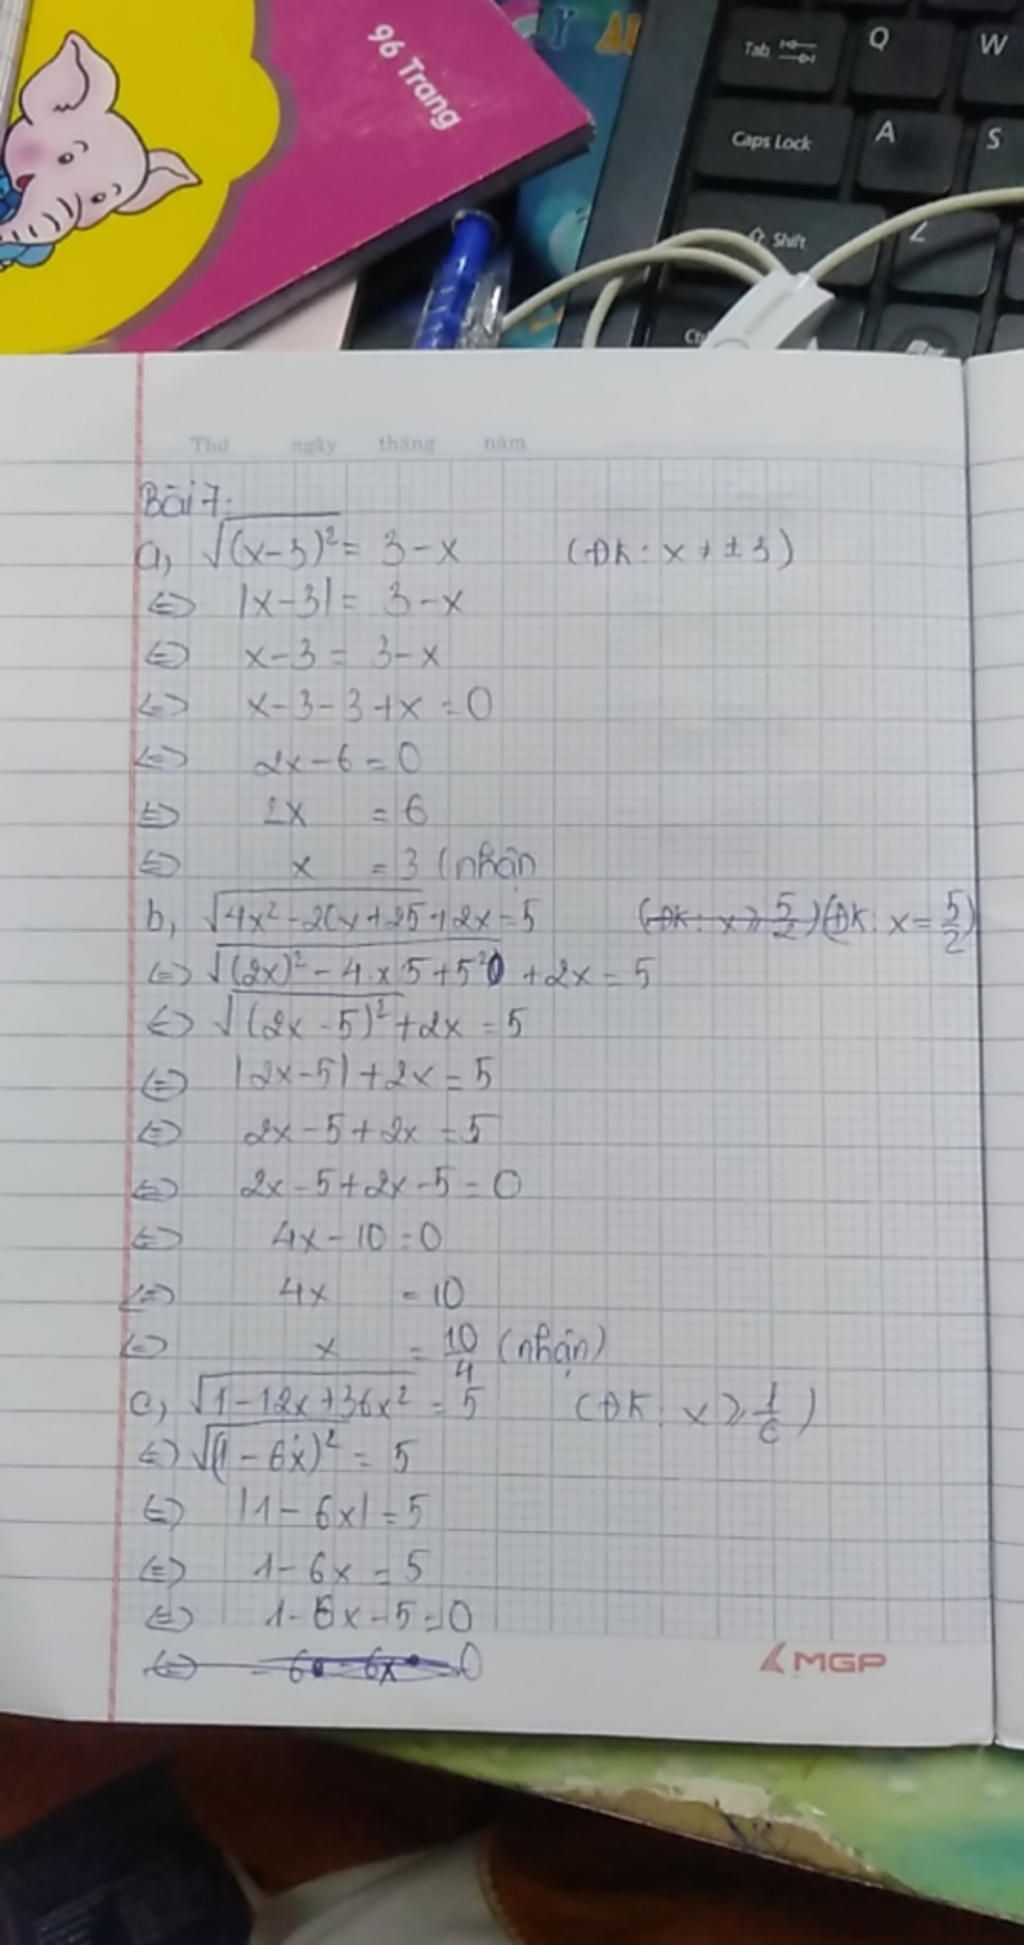 96 Trang
Y AI
Tab
Q
W
Caps Lock
A
S
Shift
Z
Ct
Thứ ngày tháng năm
Bài 7:
a, √(x-3)² = 3-x (ĐK: x ≠ ±3)
<=> |x-3| = 3-x
<=> x-3 = 3-x
<=> x-3-3+x = 0
<=> 2x-6 = 0
<=> 2x = 6
<=> x = 3 (nhận
b, √4x²-20x+25+2x=5 (ĐK: x ≥ 5/2) (ĐK: x = 5/2)
<=> √(2x)²-4x5+5² +2x = 5
<=> √(2x-5)²+2x = 5
<=> |2x-5|+2x = 5
<=> 2x-5+2x = 5
<=> 2x-5+2x-5 = 0
<=> 4x-10 = 0
<=> 4x = 10
<=> x = 10/4 (nhận)
c, √1-12x+36x² = 5 (ĐK: x ≥ 1/6)
<=> √(1-6x)² = 5
<=> |1-6x| = 5
<=> 1-6x = 5
<=> 1-6x-5 = 0
MGP